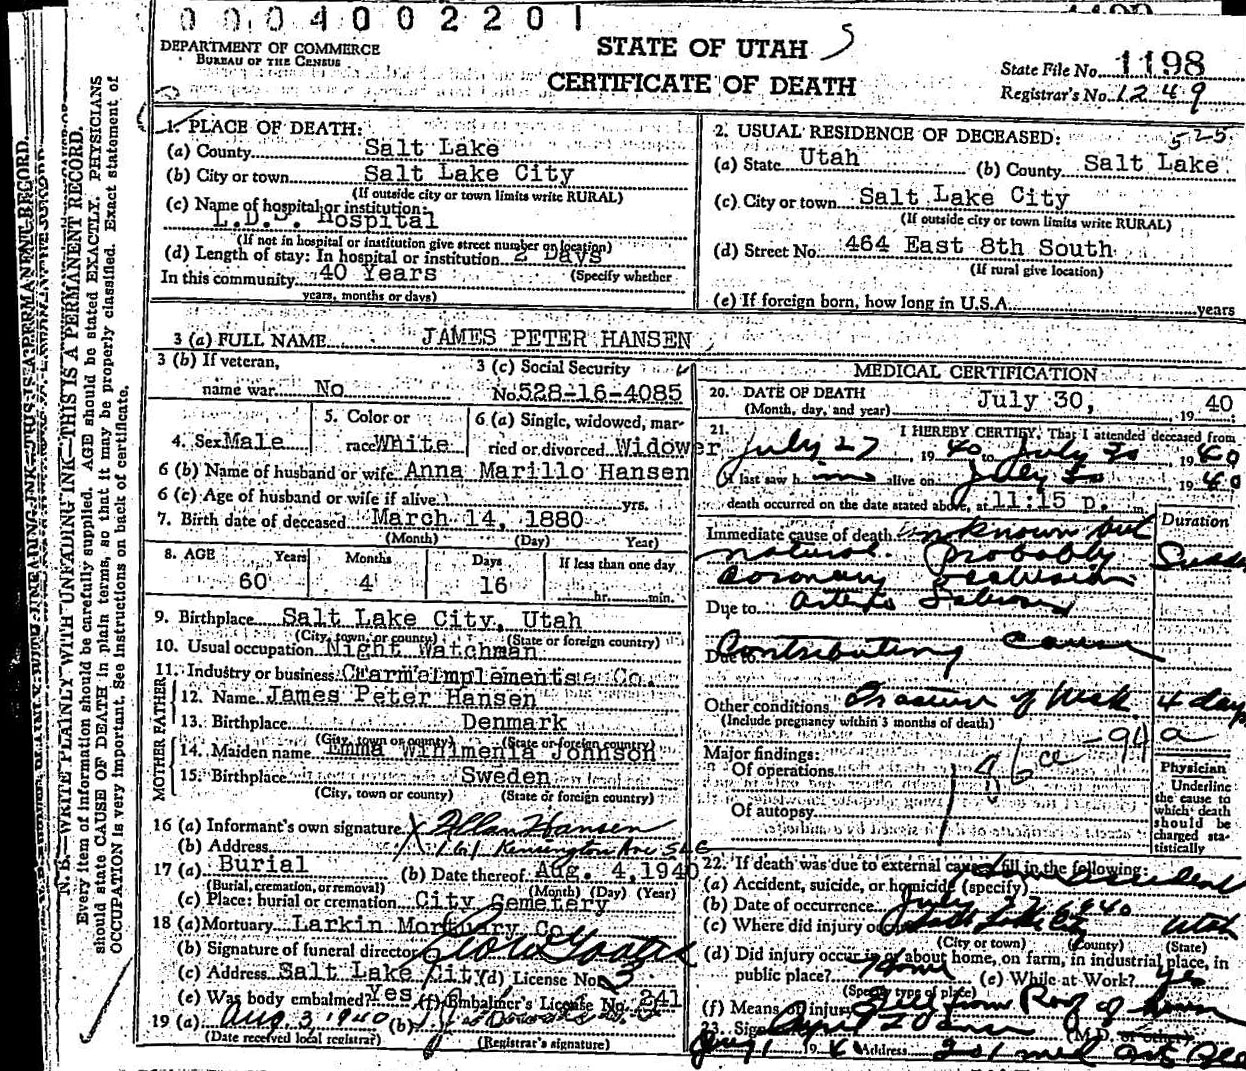 0004002201
DEPARTMENT OF COMMERCE
BUREAU OF THE CENSUS
STATE OF UTAH 5
CERTIFICATE OF DEATH
State File No. 1198
Registrar's No. 1249
N. B.—WRITE PLAINLY WITH UNFADING INK—THIS IS A PERMANENT RECORD.
Every item of information should be carefully supplied. AGE should be stated EXACTLY. PHYSICIANS
should state CAUSE OF DEATH in plain terms, so that it may be properly classified. Exact statement of
OCCUPATION is very important. See instructions on back of certificate.
1. PLACE OF DEATH:
(a) County Salt Lake
(b) City or town Salt Lake City
(If outside city or town limits write RURAL)
(c) Name of hospital or institution:
L.D.S. Hospital
(If not in hospital or institution give street number or location)
(d) Length of stay: In hospital or institution 2 Days
(Specify whether
In this community 40 Years
years, months or days)
2. USUAL RESIDENCE OF DECEASED: 525
(a) State Utah (b) County Salt Lake
(c) City or town Salt Lake City
(If outside city or town limits write RURAL)
(d) Street No. 464 East 8th South
(If rural give location)
(e) If foreign born, how long in U.S.A. years
3 (a) FULL NAME JAMES PETER HANSEN
3 (b) If veteran,
name war No
3 (c) Social Security
No. 528-16-4085
4. Sex Male
5. Color or
race White
6 (a) Single, widowed, mar-
ried or divorced Widower
6 (b) Name of husband or wife Anna Marillo Hansen
6 (c) Age of husband or wife if alive yrs.
7. Birth date of deceased March 14, 1880
(Month) (Day) Year)
8. AGE Years Months Days If less than one day
60 4 16 hr. min.
9. Birthplace Salt Lake City, Utah
(City, town, or county) (State or foreign country)
10. Usual occupation Night Watchman
11. Industry or business Farm Implements Co.
FATHER
12. Name James Peter Hansen
13. Birthplace Denmark
(City, town or county) (State or foreign country)
MOTHER
14. Maiden name Emma Wilhmenia Johnson
15. Birthplace Sweden
(City, town or county) (State or foreign country)
16 (a) Informant's own signature X Allan Hansen
(b) Address 1161 Kensington Ave SLC
17 (a) Burial (b) Date thereof Aug. 4, 1940
(Burial, cremation, or removal) (Month) (Day) (Year)
(c) Place: burial or cremation City Cemetery
18 (a) Mortuary Larkin Mortuary Co.
(b) Signature of funeral director
(c) Address Salt Lake City (d) License No. 3
(e) Was body embalmed? Yes (f) Embalmer's License No. 241
19 (a) Aug. 3, 1940 (b)
(Date received local registrar) (Registrar's signature)
MEDICAL CERTIFICATION
20. DATE OF DEATH
(Month, day, and year) July 30, 19 40
21. I HEREBY CERTIFY, That I attended deceased from
July 27, 19 40 to July 30, 19 40
I last saw h im alive on July 30 19 40
death occurred on the date stated above, at 11:15 p. m.
Duration
Immediate cause of death Unknown but
natural. Probably
coronary occlusion
Due to
Due to
Contributing Cause
Other conditions Fracture of Neck 4 days
(Include pregnancy within 3 months of death)
94 a
Major findings:
Of operations
Of autopsy
Physician
Underline
the cause to
which death
should be
charged sta-
tistically
22. If death was due to external cause fill in the following:
(a) Accident, suicide, or homicide (specify) Accident
(b) Date of occurrence July 27 1940
(c) Where did injury occur Salt Lake City Utah
(City or town) (County) (State)
(d) Did injury occur in or about home, on farm, in industrial place, in
public place? Home (e) While at Work? yes
(Specify type of place)
(f) Means of injury Fell from Roof of home
23. Sign (M.D. or other)
Aug 1 19 40 Address